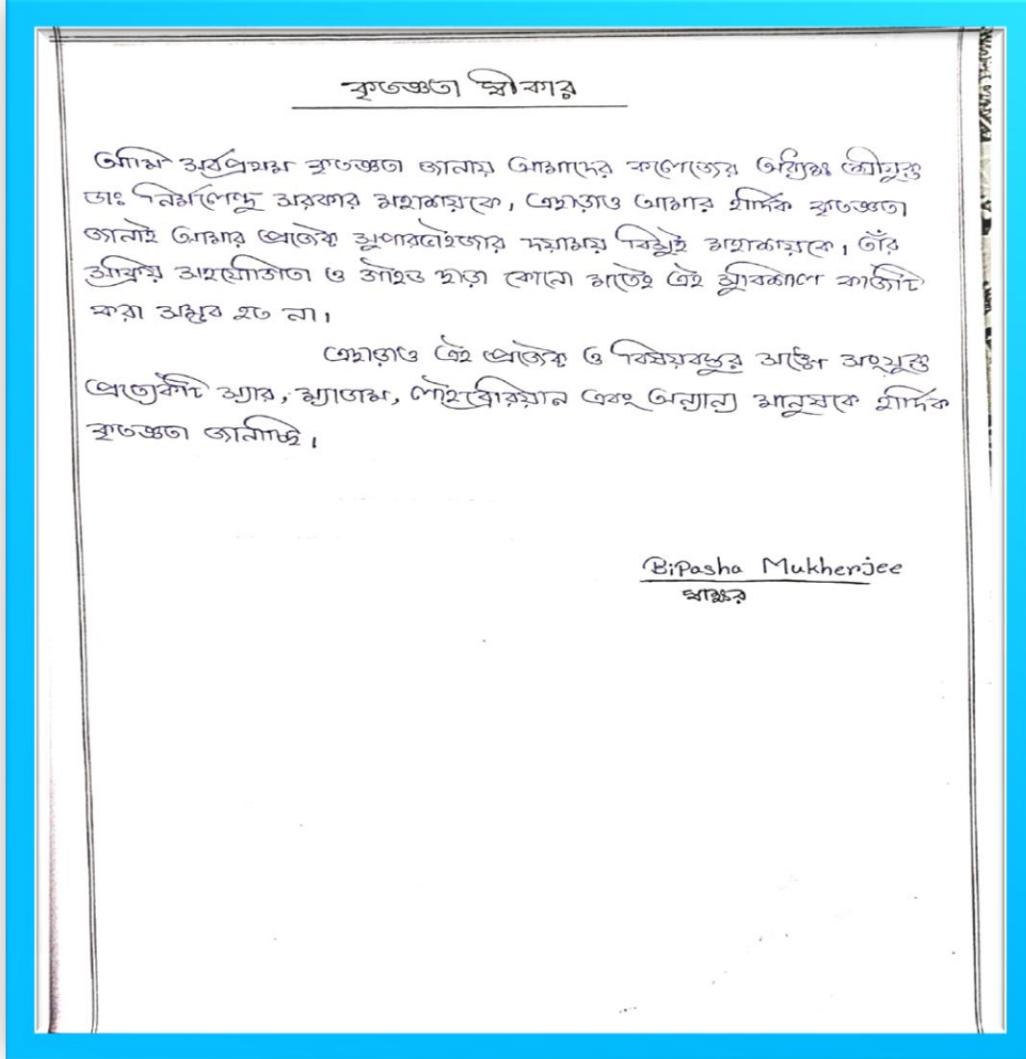 কৃতজ্ঞতা স্বীকার
আমি সর্বপ্রথম কৃতজ্ঞতা জানায় আমাদের কলেজের অধ্যিক্ষ শ্রীযুক্ত
ডাঃ নির্মলেন্দু সরকার মহাশয়কে, এছাড়াও আমার হার্দিক কৃতজ্ঞতা
জানাই আমার প্রজেক্ট সুপারভাইজার দয়াময় বিষুই মহাশয়কে, তাঁর
সক্রিয় সহযোগিতা ও সাহায্য ছাড়া কোনো মতেই এই সুবিশাল কাজটি
করা সম্ভব হত না।
এছাড়াও এই প্রজেক্ট ও বিষয়বস্তুর সঙ্গে সংযুক্ত
প্রত্যেকটি স্যার, ম্যাডাম, লাইব্রেরিয়ান এবং অন্যান্য মানুষকে হার্দিক
কৃতজ্ঞতা জানাচ্ছি।
Bipasha Mukherjee
স্বাক্ষর